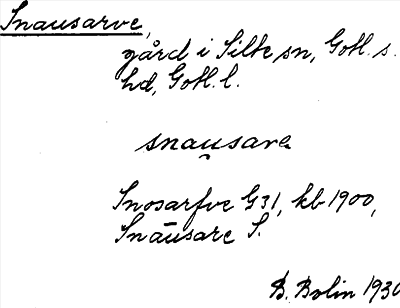 Snausarve,
gård i Silte sn, Gotl. s.
hd, Gotl. l.
snausara
Snosarfve G31, kb 1900,
Snausare S.
B. Bolin 1930